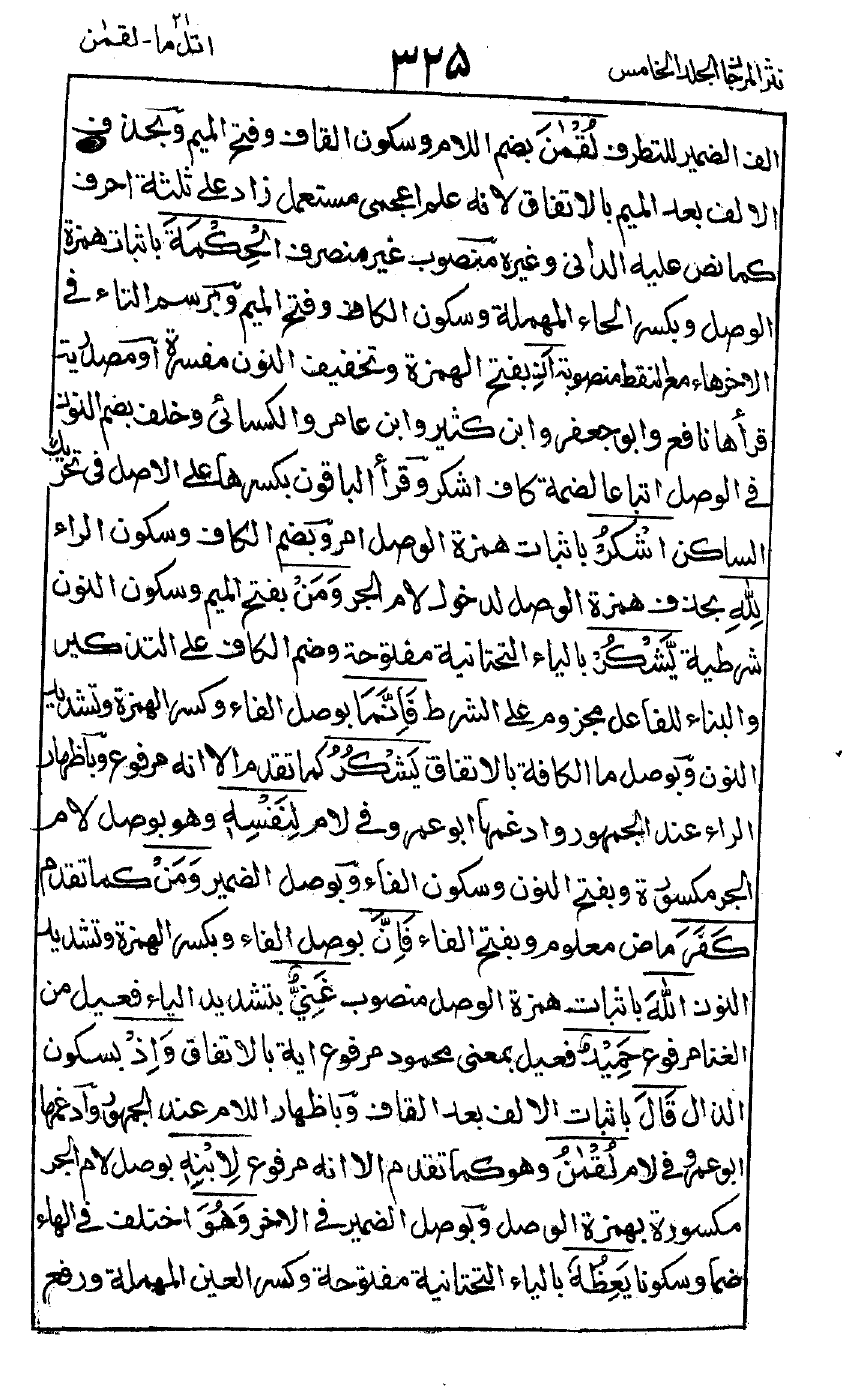 نثر المرجان الجلد الخامس ٣٢٥ اتل ما۲۱ - لقمٰن
الف الضمير للتطرف لُقْمٰنَ بضم اللام وسكون القاف وفتح الميم وبحذف
الالف بعد الميم بالاتفاق لانه علم اعجمى مستعمل زاد على ثلثة احرف
كما نص عليه الدانى وغيره منصوب غير منصرف الْحِكْمَةَ باثبات همزة
الوصل وبكسر الحاء المهملة وسكون الكاف وفتح الميم وبرسم التاء فى
الاخر هاء مع النقط منصوبة اَنِ بفتح الهمزة وتخفيف النون مفسرة او مصدرية
قرأها نافع وابو جعفر وابن كثير وابن عامر والكسائى وخلف بضم النون
فى الوصل اتباعا لضمة كاف اشكر وقرأ الباقون بكسرها على الاصل فى تحريك
الساكن اشْكُرْ باثبات همزة الوصل امر وبضم الكاف وسكون الراء
لِلّٰهِ بحذف همزة الوصل لدخول لام الجر وَمَنْ بفتح الميم وسكون النون
شرطية يَّشْكُرْ بالياء التحتانية مفتوحة وضم الكاف على التذكير
والبناء للفاعل مجزوم على الشرط فَاِنَّمَا بوصل الفاء وكسر الهمزة وتشديد
النون وبوصل ما الكافة بالاتفاق يَشْكُرُ كما تقدم الا انه مرفوع وباظهار
الراء عند الجمهور وادغمها ابو عمرو فى لام لِنَفْسِهٖ وهو بوصل لام
الجر مكسورة وبفتح النون وسكون الفاء وبوصل الضمير وَمَنْ كما تقدم
كَفَرَ ماض معلوم وبفتح الفاء فَاِنَّ بوصل الفاء وبكسر الهمزة وتشديد
النون اللّٰهَ باثبات همزة الوصل منصوب غَنِيٌّ بتشديد الياء فعيل من
الغنا مرفوع حَمِيْدٌ فعيل بمعنى محمود مرفوع اية بالاتفاق وَاِذْ بسكون
الذال قَالَ باثبات الالف بعد القاف وباظهار اللام عند الجمهور وادغمها
ابو عمرو فى لام لُقْمٰنُ وهو كما تقدم الا انه مرفوع لِابْنِهٖ بوصل لام الجر
مكسورة بهمزة الوصل وبوصل الضمير فى الاخر وَهُوَ اختلف فى الهاء
ضما وسكونا يَعِظُهٗ بالياء التحتانية مفتوحة وكسر العين المهملة ورفع